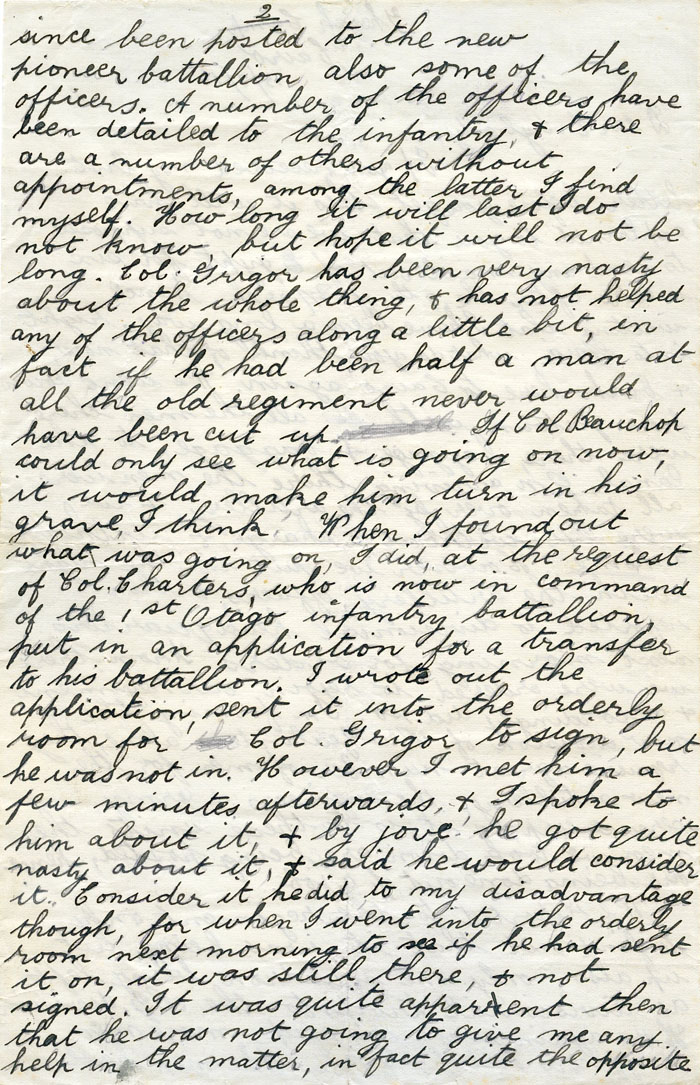 2
since been posted to the new
pioneer battallion, also some of the
officers. A number of the officers have
been detailed to the infantry, & there
are a number of others without
appointments, among the latter I find
myself. How long it will last I do
not know, but hope it will not be
long. Col. Grigor has been very nasty
about the whole thing, & has not helped
any of the officers along a little bit, in
fact if he had been half a man at
all the old regiment never would
have been cut up. If Col Bauchop
could only see what is going on now,
it would make him turn in his
grave, I think. When I found out
what was going on, I did, at the request
of Col. Charters, who is now in command
of the 1st Otago infantry battallion,
put in an application for a transfer
to his battallion. I wrote out the
application, sent it into the orderly
room for Col. Grigor to sign, but
he was not in. However I met him a
few minutes afterwards, & I spoke to
him about it, & by jove! he got quite
nasty about it, & said he would consider
it. Consider it he did, to my disadvantage
though, for when I went into the orderly
room next morning to see if he had sent
it on, it was still there, & not
signed. It was quite apparent then
that he was not going to give me any
help in the matter, in fact quite the opposite